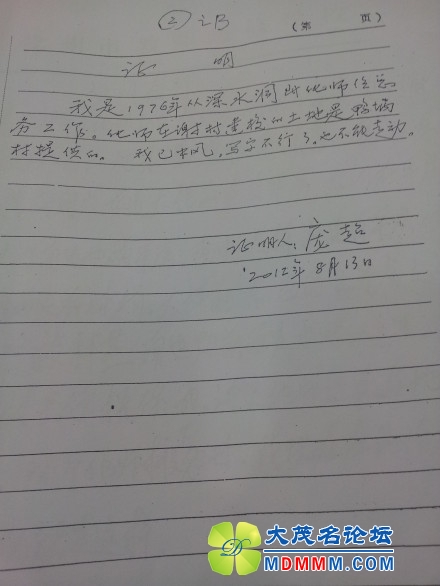 ② 证B
(第 页)
证 明
我是1976年从深水洞 化师任总
务工作。化师在谢村建校的土地是鸭塘
村提供的。 我已中风,写字不行了,也不能走动。
证明人:庞超
2012年8月13日
大茂名论坛
MDMMM.COM